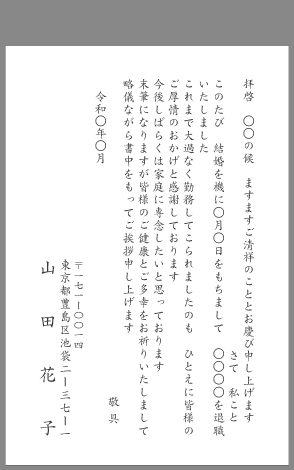 拝啓　〇〇の候　ますますご清祥のこととお慶び申し上げます
さて　私こと
このたび　結婚を機に〇月〇日をもちまして　〇〇〇〇を退職
いたしました
これまで大過なく勤務してこられましたのも　ひとえに皆様の
ご厚情のおかげと感謝しております
今後しばらくは家庭に専念したいと思っております
末筆になりますが皆様のご健康とご多幸をお祈りいたしまして
略儀ながら書中をもってご挨拶申し上げます
敬具
令和〇年〇月
〒一七一－〇〇一四
東京都豊島区池袋二ー三七ー一
山田花子